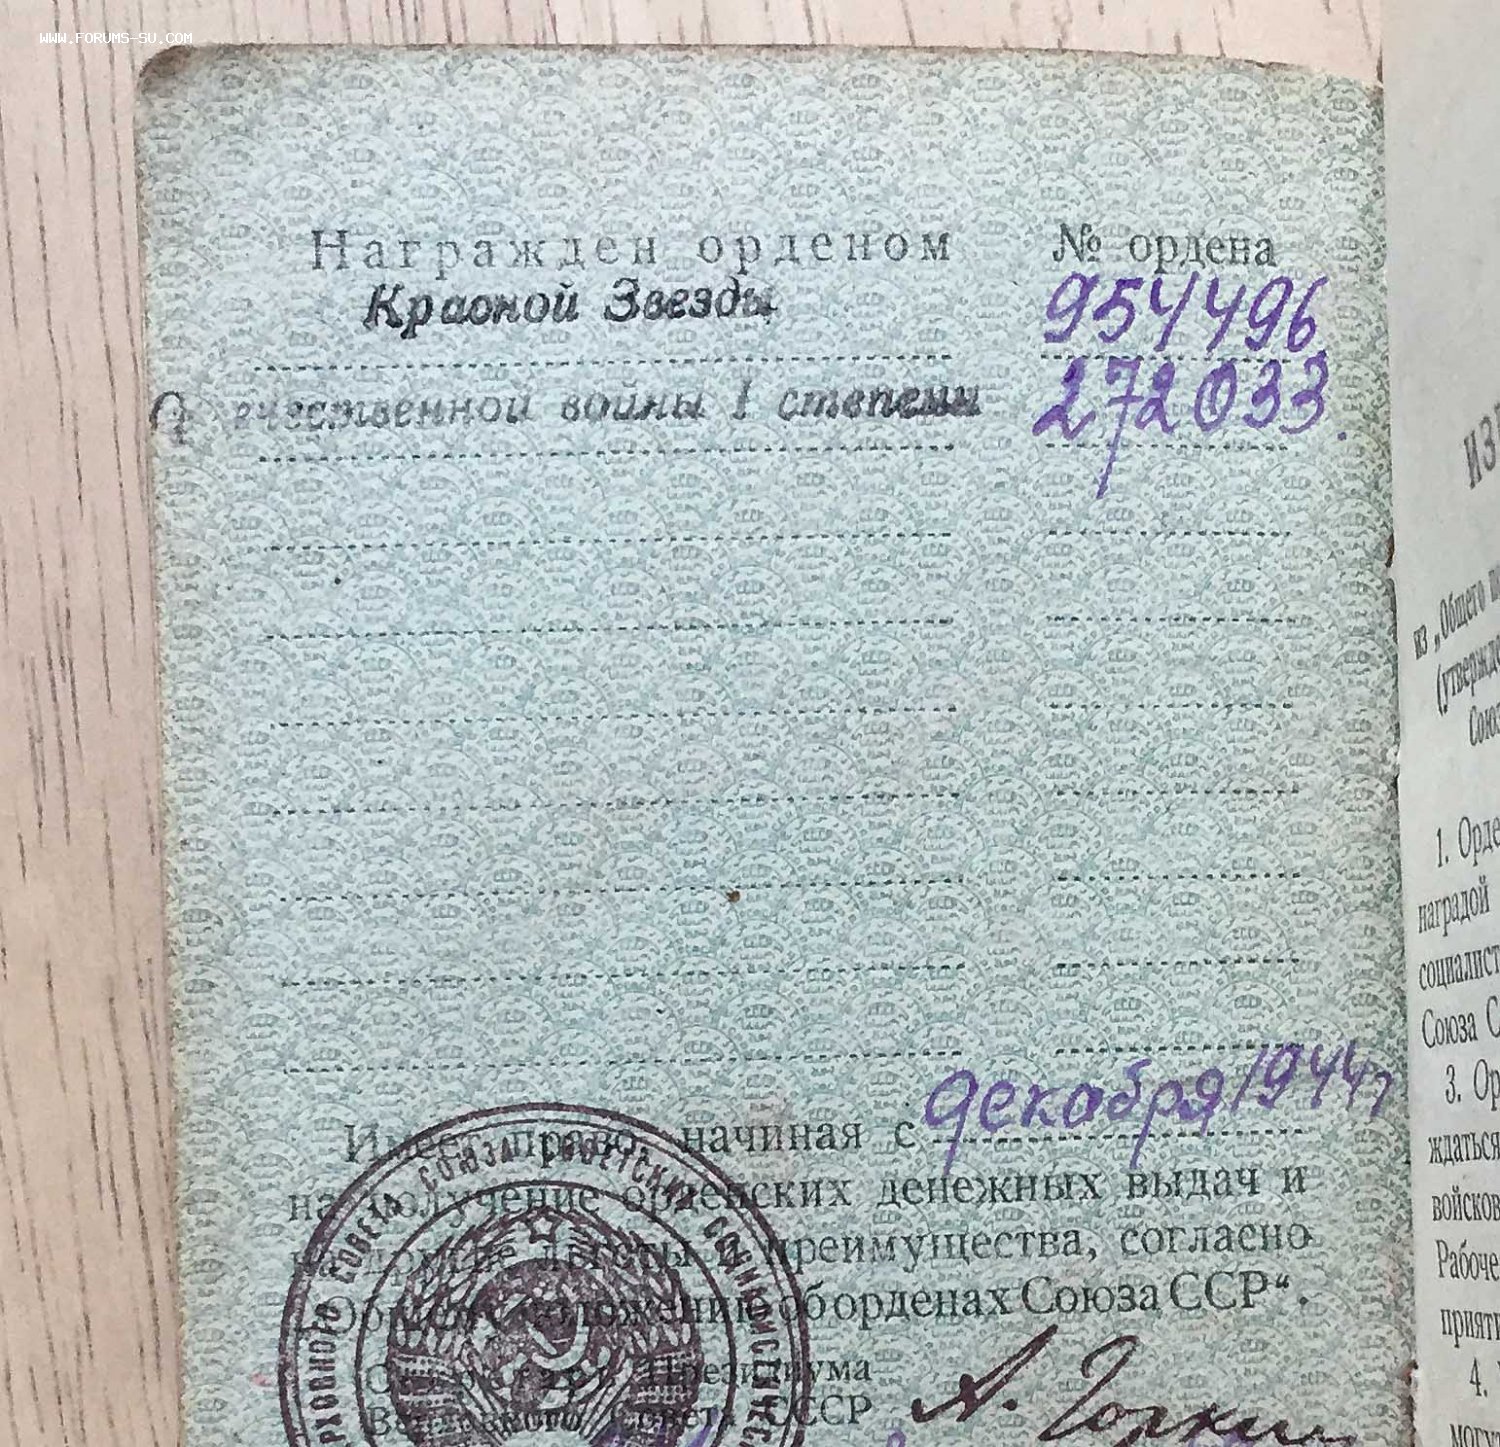 WWW.FORUMS-SU.COM
Награжден орденом
№ ордена
Красной Звезды
954496
Отечественной войны I степени
272033
Имеет право, начиная с декабря 1944 г
на получение орденских денежных выдач и
на другие льготы и преимущества, согласно
„Общему положению об орденах Союза ССР“.
Секретарь Президиума
Верховного Совета СССР
А. Горкин
ВЕРХОВНОГО СОВЕТА СОЮЗА СОВЕТСКИХ СОЦИАЛИСТИЧЕСКИХ
из „Общего
(утвержде
Союз
1. Орде
наградой
социалист
Союза С
3. Ор
ждаться
войсков
Рабоче
прияти
4.
могут